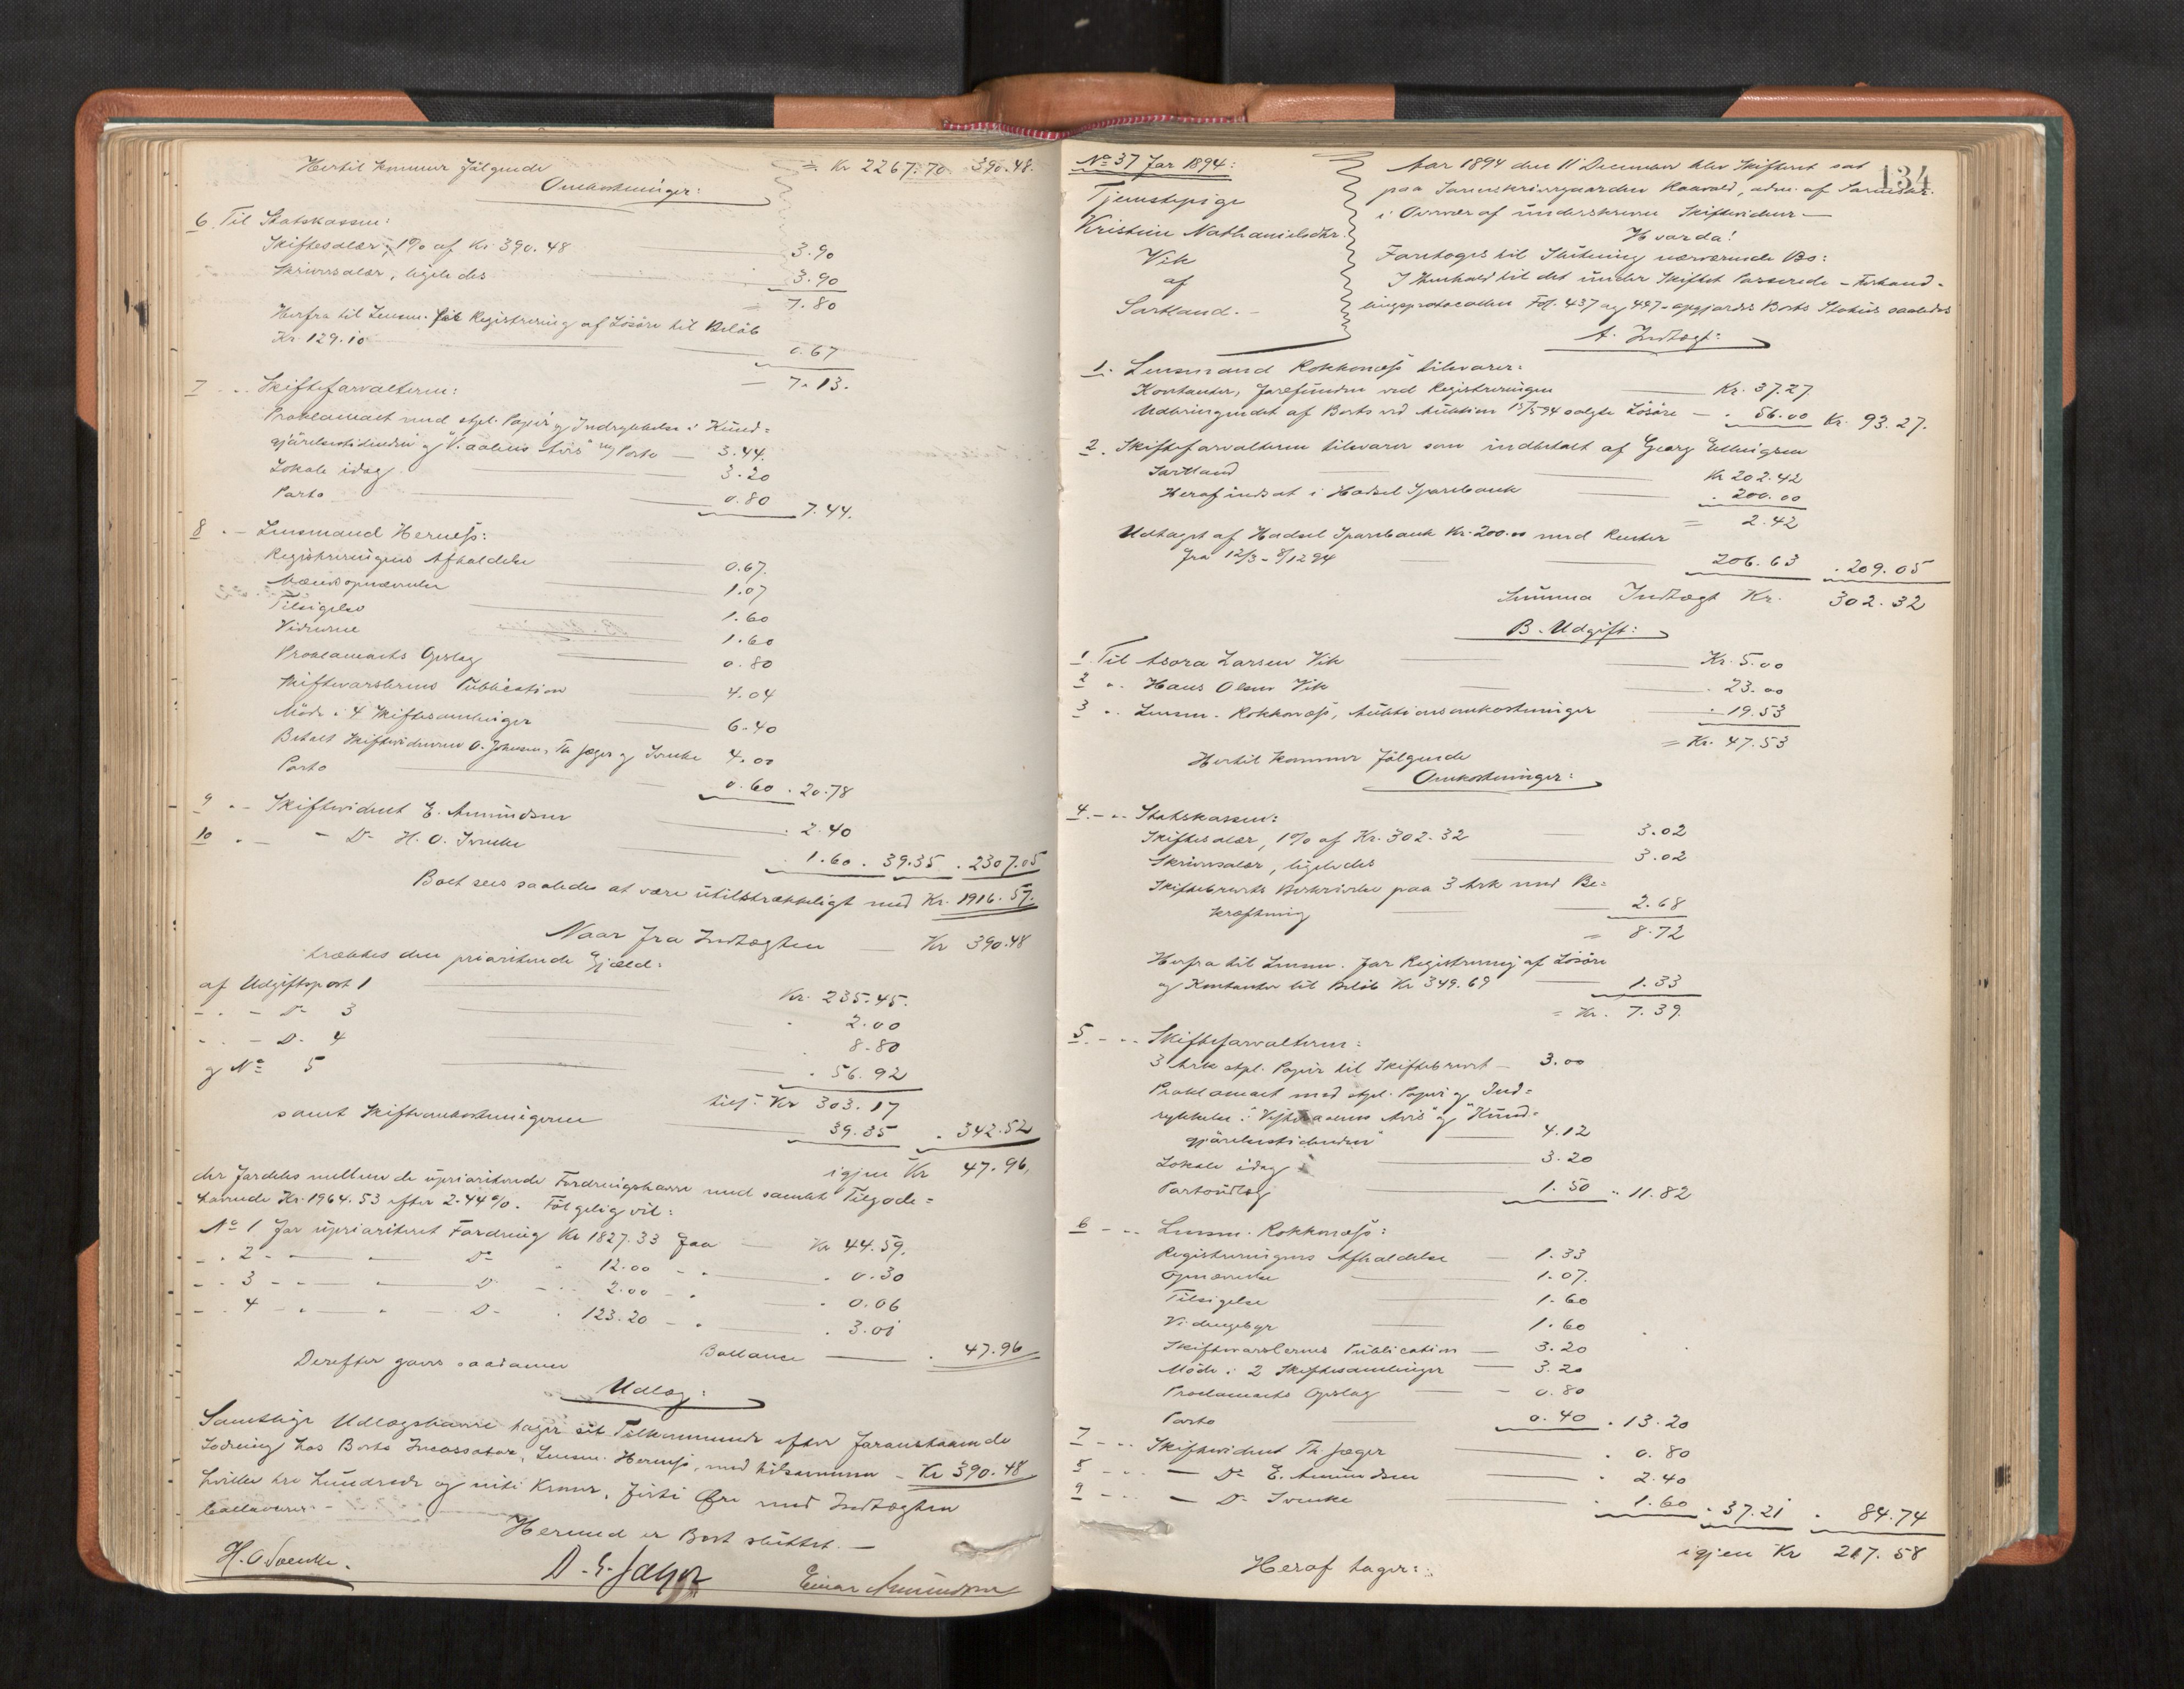 Hertil kommer følgende = Kr 2267.70 390.48.
Omkostninger:
6. Til Statskassen:
Skiftesalær, 1% af Kr. 390.48 3.90
Skriversalær, ligeledes 3.90
= 7.80
Herfra til Lensm. for Registrering af Løsøre til Beløb
Kr. 129.10 0.67
— 7.13.
7 . - Skifteforvalteren:
Proklamaet med stpl. Papir og Indrykkelse i Kund=
gjørelsestidende og "V.aalens Avis" og Porto — 3.44.
Lokale idag 3.20
Porto 0.80 7.44.
8 . - Lensmand Herness:
Registreringens Afholdelse 0.67.
Mændsopnævnelse 1.07
Tilsigelse 1.60
Vidnerne 1.60
Proklamaets Opslag 0.80
Skiftevarslernes Publication 4.04
Møde i 4 Skiftesamlinger 6.40
Betalt Skiftevidnerne O. Johnsen, Th Jæger og Svenke 4.00
Porto 0.60 . 20.78
9 . - Skiftevidnet E. Amundsen . 2.40
10 . - - Do H. O. Svenke . 1.60 . 39.35 . 2307.05
Boet sees saaledes at være utilstrækkeligt med Kr. 1916.57.
Naar fra Indtægten — Kr 390.48
trækkes den prioriterede Gjæld:
af Udgiftspost 1 Kr. 235.45.
- . - Do 3 . 2.00
- . - Do 4 . 8.80
og No 5 . 56.92
tils. Kr 303.17
samt Skifteomkostningerne 39.35 . 342.52
igjen Kr 47.96,
der fordeles mellem de uprioriterede Fordringshavere med samlet Tilgode=
havende Kr. 1964.53 efter 2.44%. Følgelig vil:
No 1 for uprioriteret Fordring Kr 1827.33 faa — Kr 44.59.
- . 2 - — " — Do " 12.00 - " — . 0.30
- . 3 - — " — Do - " 2.00 - " — . 0.06
- . 4 - — " — Do . 123.20 - " — . 3.01
Ballance — . 47.96
Derefter gøres saadanne
Udlæg:
Samtlige Udlægshavere tager sit Tilkommende efter foranstaaende
Lodning hos Boets Incassator, Lensm. Herness, med tilsammen — Kr 390.48
hvilke tre hundrede og niti Kroner, firti Øre med Indtægten
ballancerer. -
Hermed er Boet sluttet. —
H. O Svenke. D. G. Jæger Einar Amundsen
134
No 37 for 1894:
Tjenestepige
Kristine Nathanielsdtr.
Vik
af
Sortland. -
Aar 1894 den 11 December blev Skifteret sat
paa Sorenskrivergaarden Haavold, adm. af Sorenskr.
i Overvær af underskrevne Skiftevidner —
Hvorda!
Foretoges til Slutning nærværende Bo:
I Henhold til det under Skiftet Passerede - Forhand-
lingsprotocollen Fol. 437 og 497 - opgjordes Boets Status saaledes
A. Indtægt:
1. Lensmand Rokkonæss tilsvarer:
Kontanter, forefunden ved Registreringen — Kr. 37.27
Udbringendet af Boets ved Auktion 15/5 94 solgte Løsøre — . 56.00 Kr. 93.27.
2. Skifteforvalteren tilsvarer som indbetalt af Georg Ellingsen
Sortland Kr 202.42
Heraf indsat i Hadsel Sparebank . 200.00
= 2.42
Udtaget af Hadsel Sparebank Kr. 200.00 med Renter
fra 12/3 - 8/12 94 206.63 . 209.05
Summa Indtægt Kr. 302.32
B. Udgift:
1 Til Asora Larsen Vik Kr. 5.00
2 " . Hans Olsen Vik . 23.00
3 " . Lensm. Rokkonæss, Auktionsomkostninger . 19.53
= Kr. 47.53
Hertil kommer følgende
Omkostninger:
4. - " Statskassen:
Skiftesalær, 1% af Kr. 302.32 3.02
Skriversalær, ligeledes 3.02
Skiftebrevets Beskrivelse paa 3 Ark med Be=
kræftning 2.68
= 8.72
Herfra til Lensm. for Registrering af Løsøre
og Kontanter til Beløb Kr 349.69 1.33
= Kr. 7.39.
5. - " Skifteforvalteren:
3 Ark stpl. Papir til Skiftebrevet — 3.00
Proklamaet med stpl. Papir og Ind=
rykkelse i "Vesteraalens Avis" og "Kund=
gjørelsestidenden" 4.12
Lokale idag 3.20
Portoudlæg 1.50 . 11.82
6 - " Lensm. Rokkonæss:
Registreringens Afholdelse — 1.33
Opnævnelse 1.07.
Tilsigelse 1.60
Vidnegebyr 1.60
Skiftevarslernes Publication — 3.20
Møde i 2 Skiftesamlinger — 3.20
Proclamaets Opslag — 0.80
Porto 0.40 . 13.20
7 - " Skiftevidnet Th. Jæger . 0.80
8 - " — Do E. Amundsen . 2.40
9 - - — Do Svenke . 1.60 . 37.21 . 84.74
igjen Kr 217.58
Heraf tager: